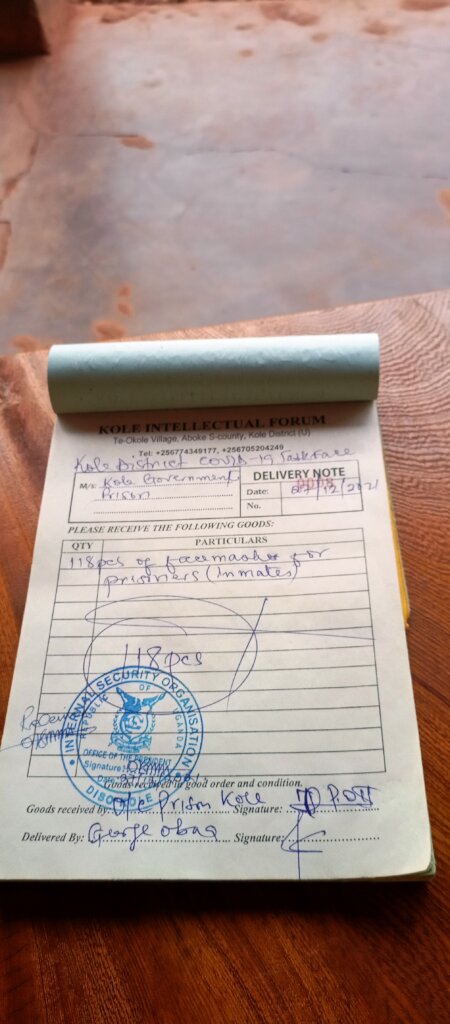 KOLE INTELLECTUAL FORUM
Te-Okole Village, Aboke S-county, Kole District (U)
Tel: +256774349177, +256705204249
Kole District COVID-19 Taskforce
M/s: Kole Government
Prison
DELIVERY NOTE
Date: 27/12/2021
No.
PLEASE RECEIVE THE FOLLOWING GOODS:
QTY PARTICULARS
118pcs of facemasks for
prisoners (Inmates)
118pcs
INTERNAL SECURITY ORGANISATION
REPUBLIC OF UGANDA
OFFICE OF THE PRESIDENT
Signature:
Date:
Goods received in good order and condition.
Goods received by: O/C Prison Kole Signature:
Delivered By: George Signature: